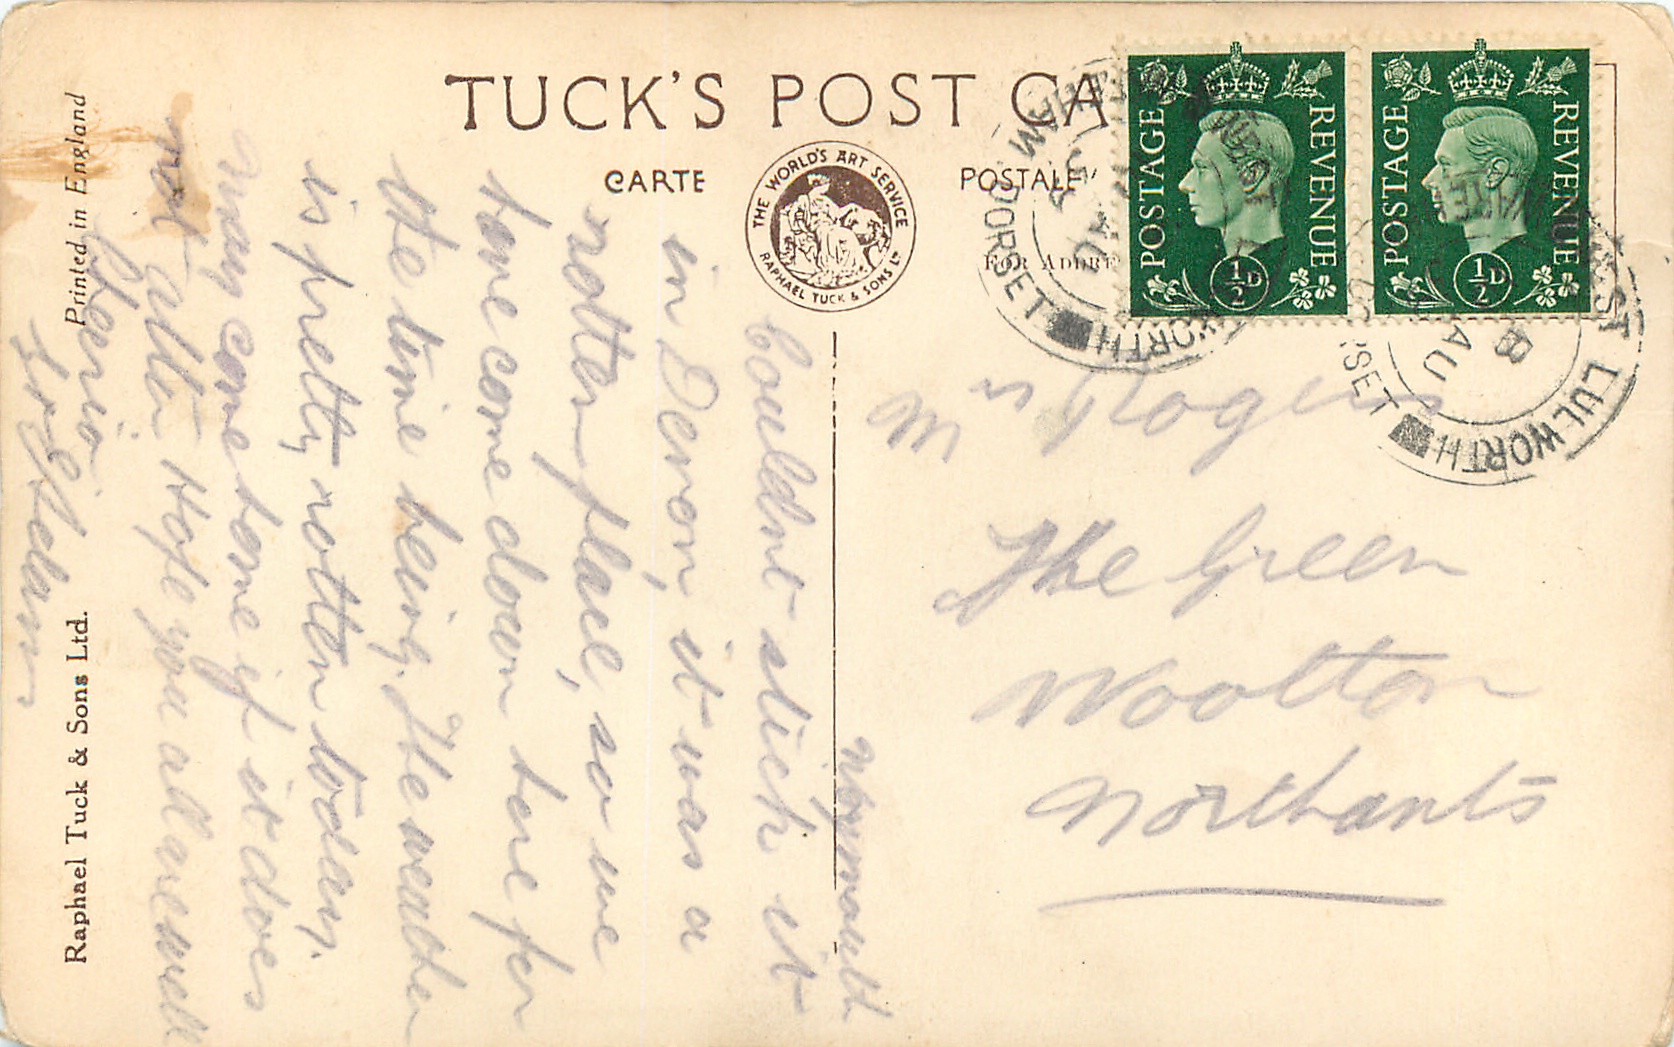 TUCK'S POST CA
CARTE
POSTALE
THE WORLD'S ART SERVICE
RAPHAEL TUCK & SONS LTD
FOR ADDRE
POSTAGE REVENUE
½D
POSTAGE REVENUE
½D
WEST LULWORTH
DORSET
AU
WEST LULWORTH
DORSET
AU
Printed in England
Raphael Tuck & Sons Ltd.
Weymouth
Couldnt stick it
in Devon, it was a
rotten place, so we
have come down here for
the time being. The weather
is pretty rotten today.
may come home if it does
not alter Hope you all are well
Cherio
Mrs Rogers
The Green
Wootton
Northants